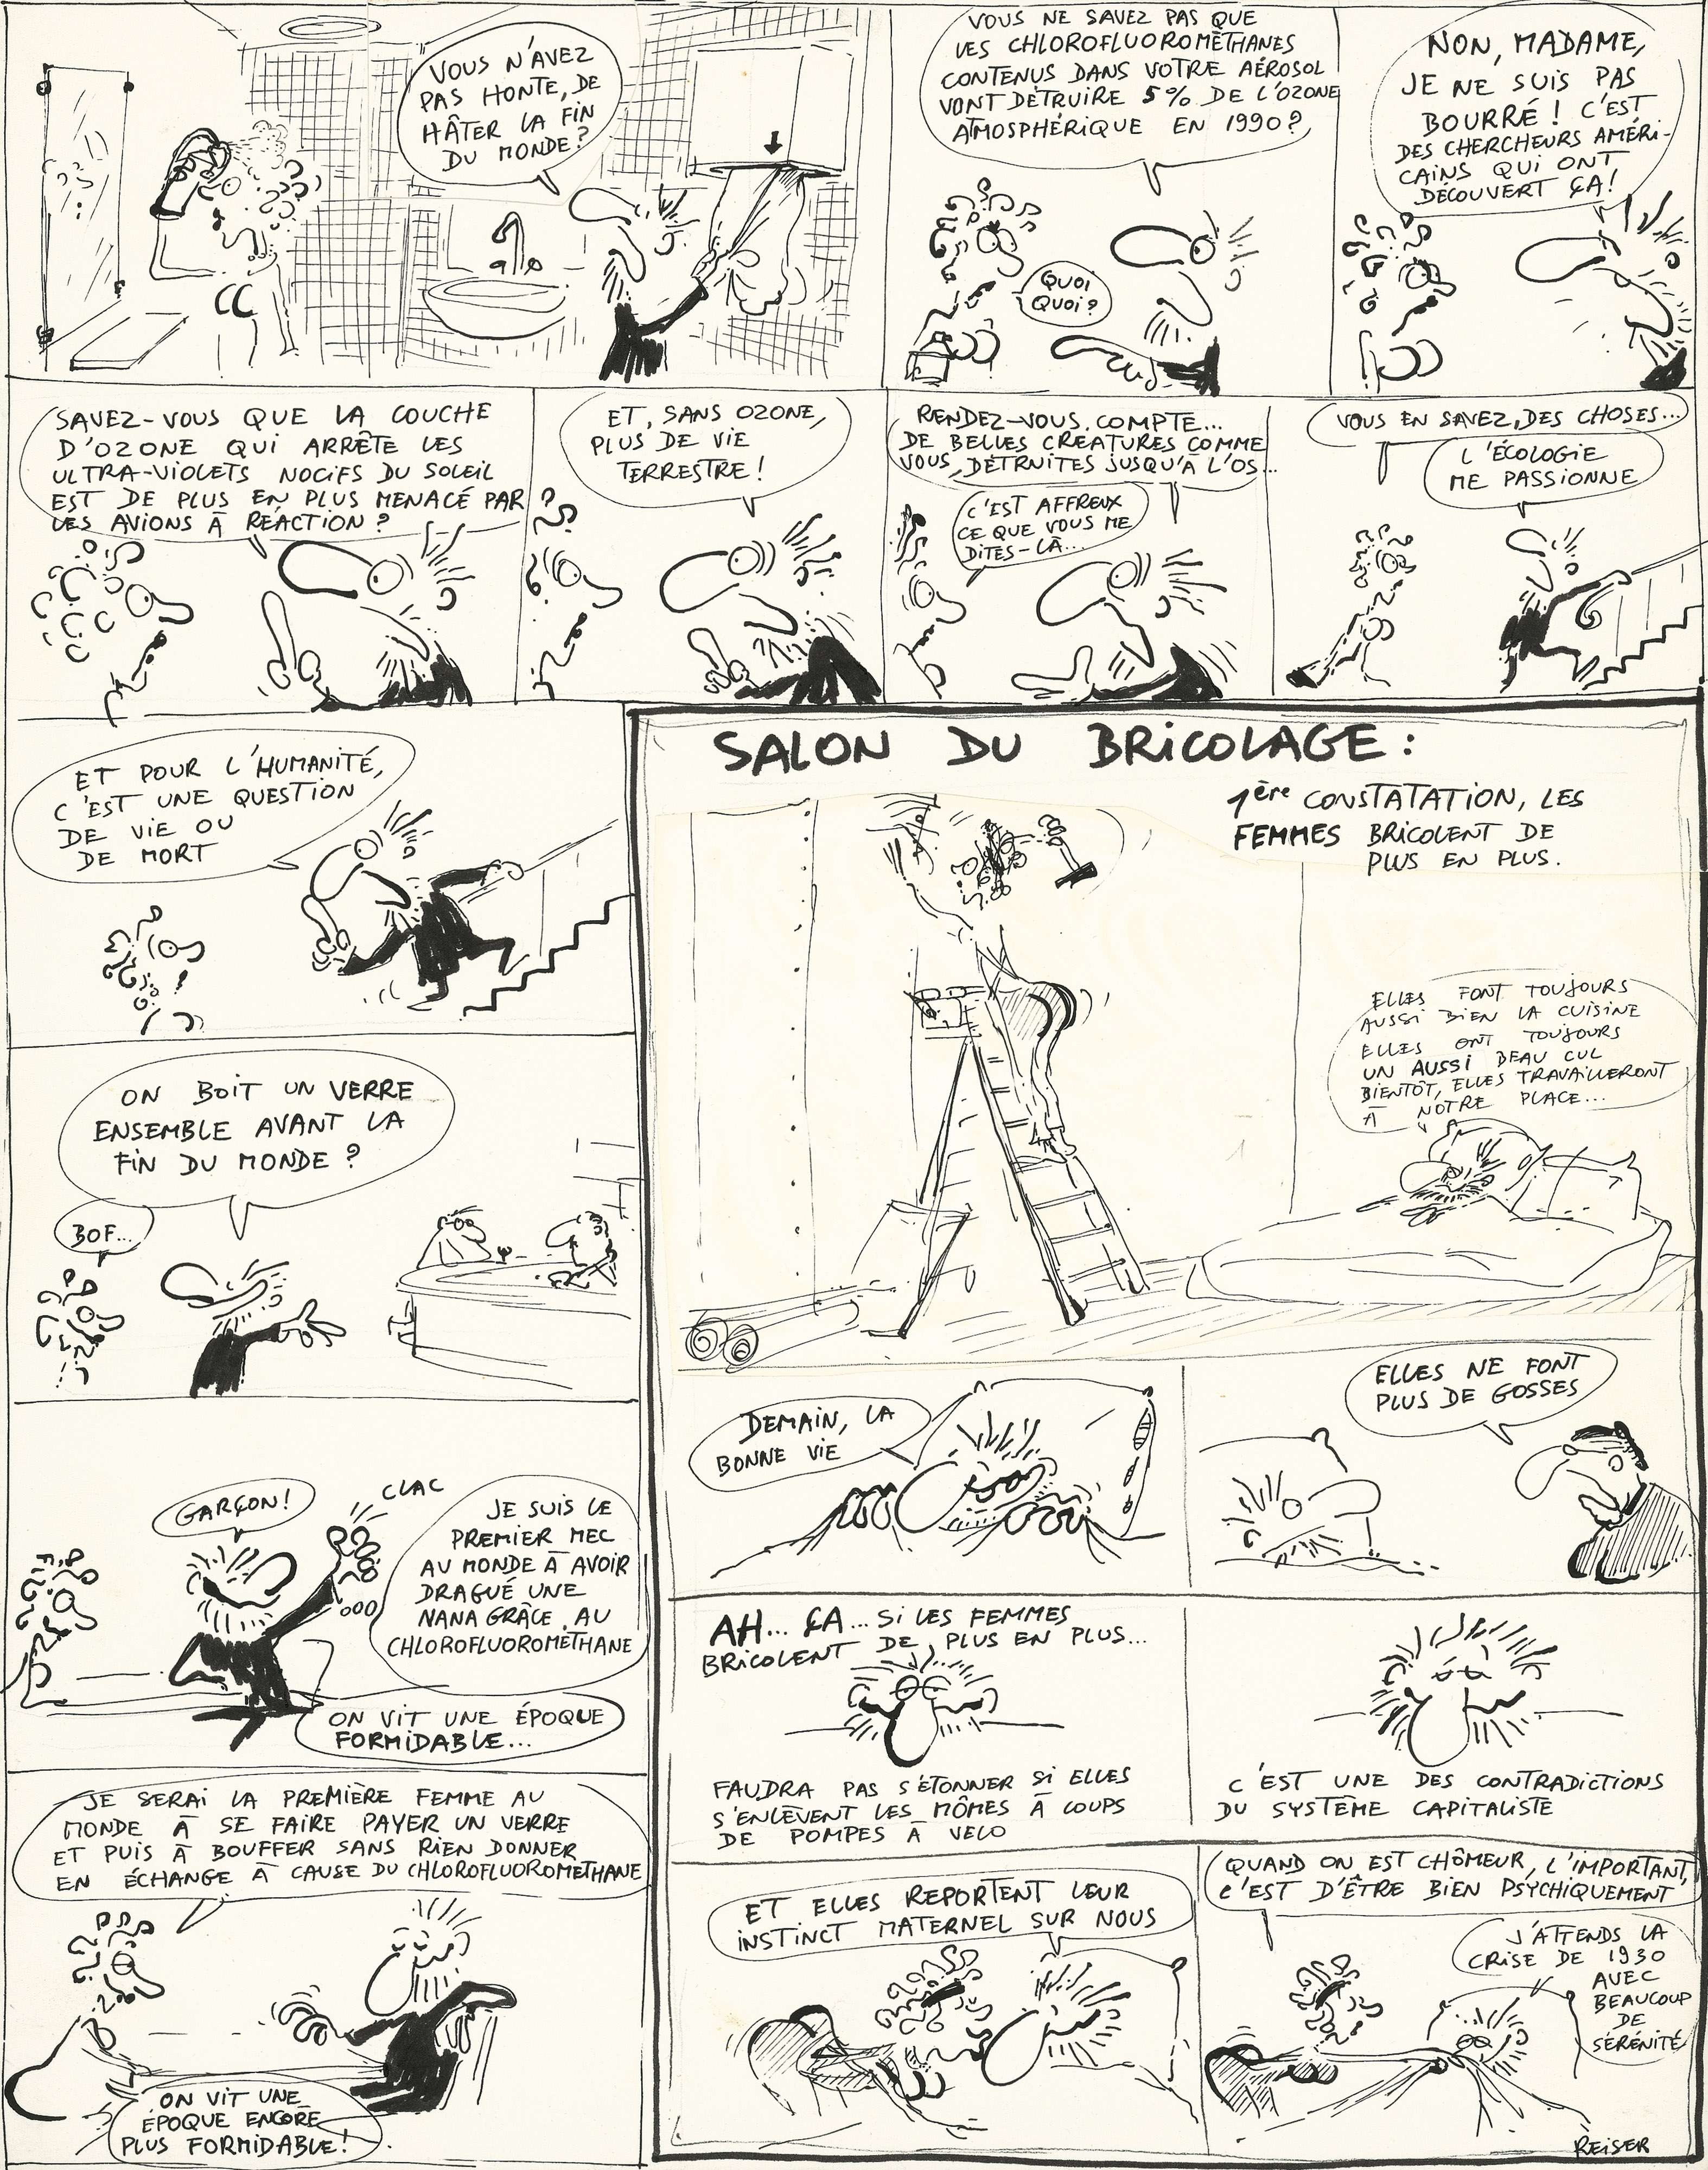 VOUS N'AVEZ
PAS HONTE, DE
HÂTER LA FIN
DU MONDE?
VOUS NE SAVEZ PAS QUE
LES CHLOROFLUOROMÉTHANES
CONTENUS DANS VOTRE AÉROSOL
VONT DÉTRUIRE 5% DE L'OZONE
ATMOSPHÉRIQUE EN 1990?
QUOI
QUOI?
NON, MADAME,
JE NE SUIS PAS
BOURRÉ! C'EST
DES CHERCHEURS AMÉRI-
CAINS QUI ONT
DÉCOUVERT ÇA!
SAVEZ-VOUS QUE LA COUCHE
D'OZONE QUI ARRÊTE LES
ULTRA-VIOLETS NOCIFS DU SOLEIL
EST DE PLUS EN PLUS MENACÉ PAR
LES AVIONS À RÉACTION?
?
ET, SANS OZONE,
PLUS DE VIE
TERRESTRE!
RENDEZ-VOUS COMPTE...
DE BELLES CREATURES COMME
VOUS, DÉTRUITES JUSQU'À L'OS...
C'EST AFFREUX
CE QUE VOUS ME
DITES-LÀ...
VOUS EN SAVEZ, DES CHOSES...
L'ÉCOLOGIE
ME PASSIONNE
ET POUR L'HUMANITÉ,
C'EST UNE QUESTION
DE VIE OU
DE MORT
ON BOIT UN VERRE
ENSEMBLE AVANT LA
FIN DU MONDE?
BOF...
GARÇON!
CLAC
JE SUIS LE
PREMIER MEC
AU MONDE À AVOIR
DRAGUÉ UNE
NANA GRÂCE AU
CHLOROFLUOROMÉTHANE
ON VIT UNE ÉPOQUE
FORMIDABLE...
JE SERAI LA PREMIÈRE FEMME AU
MONDE À SE FAIRE PAYER UN VERRE
ET PUIS À BOUFFER SANS RIEN DONNER
EN ÉCHANGE À CAUSE DU CHLOROFLUOROMÉTHANE
ON VIT UNE
ÉPOQUE ENCORE
PLUS FORMIDABLE!
SALON DU BRICOLAGE:
1ère CONSTATATION, LES
FEMMES BRICOLENT DE
PLUS EN PLUS.
ELLES FONT TOUJOURS
AUSSI BIEN LA CUISINE
ELLES ONT TOUJOURS
UN AUSSI BEAU CUL
BIENTÔT, ELLES TRAVAILLERONT
À NOTRE PLACE...
DEMAIN, LA
BONNE VIE
ELLES NE FONT
PLUS DE GOSSES
AH... ÇA... SI LES FEMMES
BRICOLENT DE PLUS EN PLUS...
FAUDRA PAS S'ÉTONNER SI ELLES
S'ENLÈVENT LES MÔMES À COUPS
DE POMPES À VELO
C'EST UNE DES CONTRADICTIONS
DU SYSTÊME CAPITALISTE
ET ELLES REPORTENT LEUR
INSTINCT MATERNEL SUR NOUS
QUAND ON EST CHÔMEUR, L'IMPORTANT,
C'EST D'ÊTRE BIEN PSYCHIQUEMENT
J'ATTENDS LA
CRISE DE 1930
AVEC
BEAUCOUP
DE
SÉRÉNITÉ
REISER